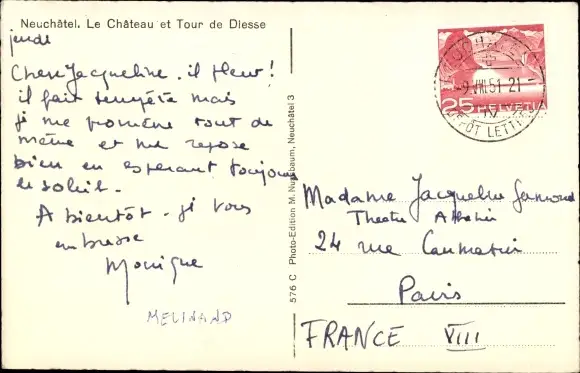 Neuchâtel. Le Château et Tour de Diesse
jeudi
Chère Jacqueline, il pleut!
il fait tempête mais
je me promène tout de
même et me repose
bien en espérant toujours
le soleil.
A bientôt. je vous
embrasse
Monique
MELINAND
576 C Photo-Edition M. Nussbaum, Neuchâtel 3
NEUCHATEL
-9.VIII.51-21
DÉPÔT LETTRES
25 HELVETIA
Madame Jacqueline
Theatre
24 rue
Paris
FRANCE VIII